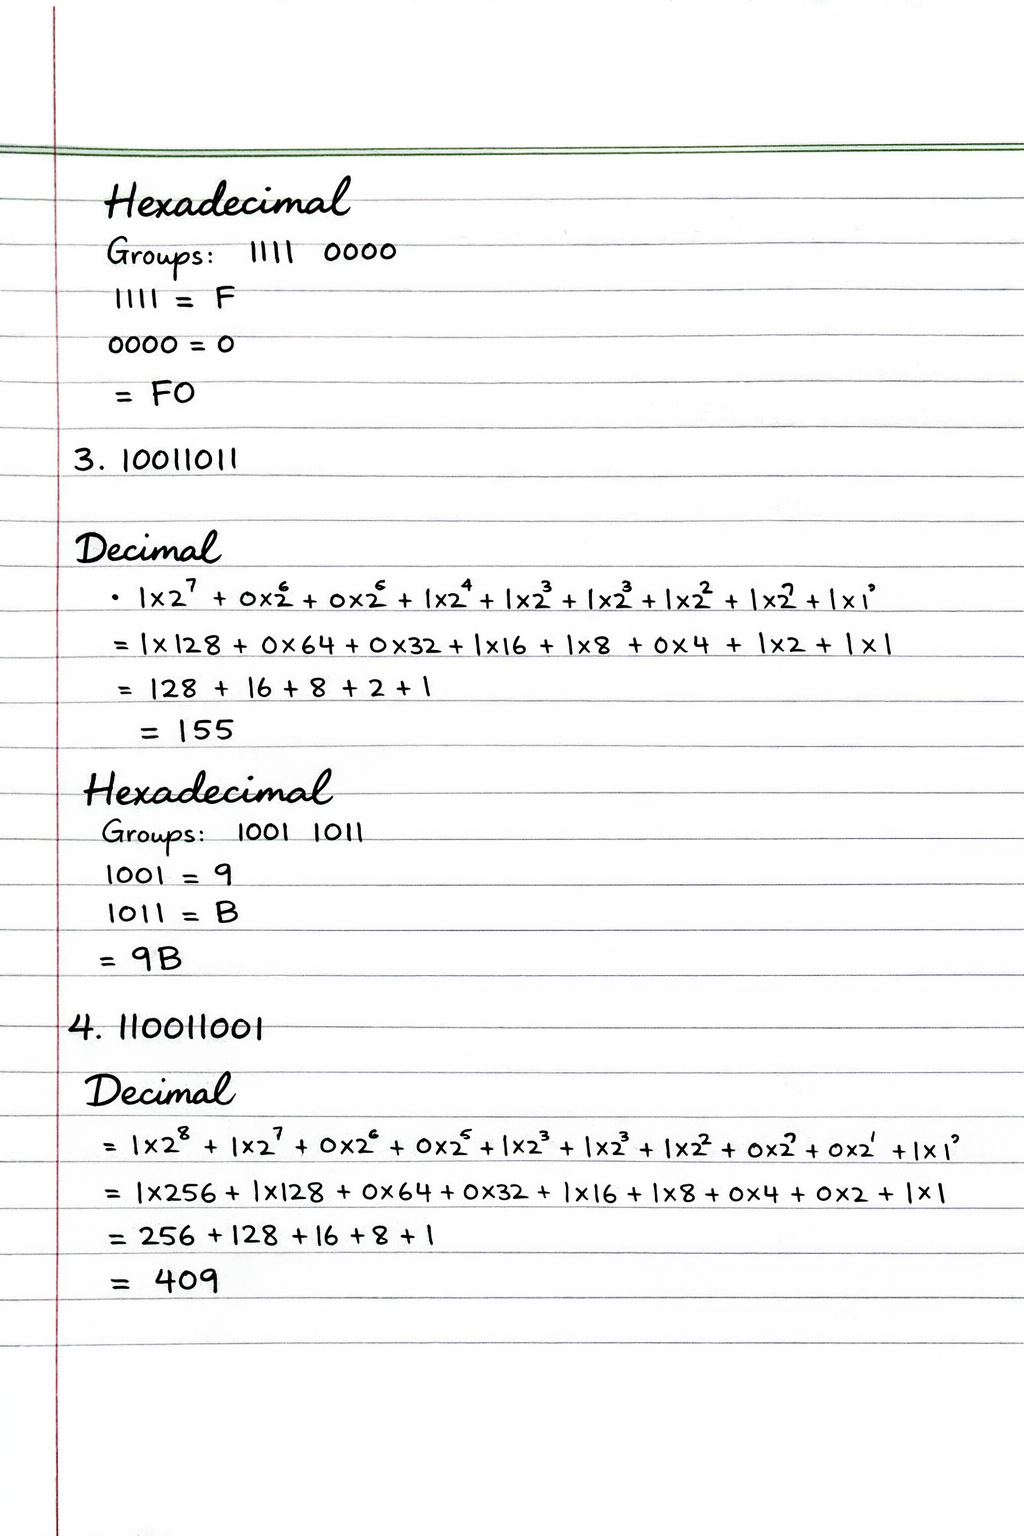 Hexadecimal
Groups: 1111 0000
1111 = F
0000 = 0
= F0
3. 10011011
Decimal
• 1×2⁷ + 0×2⁶ + 0×2⁵ + 1×2⁴ + 1×2³ + 1×2³ + 1×2² + 1×2² + 1×1⁰
= 1×128 + 0×64 + 0×32 + 1×16 + 1×8 + 0×4 + 1×2 + 1×1
= 128 + 16 + 8 + 2 + 1
= 155
Hexadecimal
Groups: 1001 1011
1001 = 9
1011 = B
= 9B
4. 110011001
Decimal
= 1×2⁸ + 1×2⁷ + 0×2⁶ + 0×2⁵ + 1×2³ + 1×2³ + 1×2² + 0×2² + 0×2¹ + 1×1⁰
= 1×256 + 1×128 + 0×64 + 0×32 + 1×16 + 1×8 + 0×4 + 0×2 + 1×1
= 256 + 128 + 16 + 8 + 1
= 409